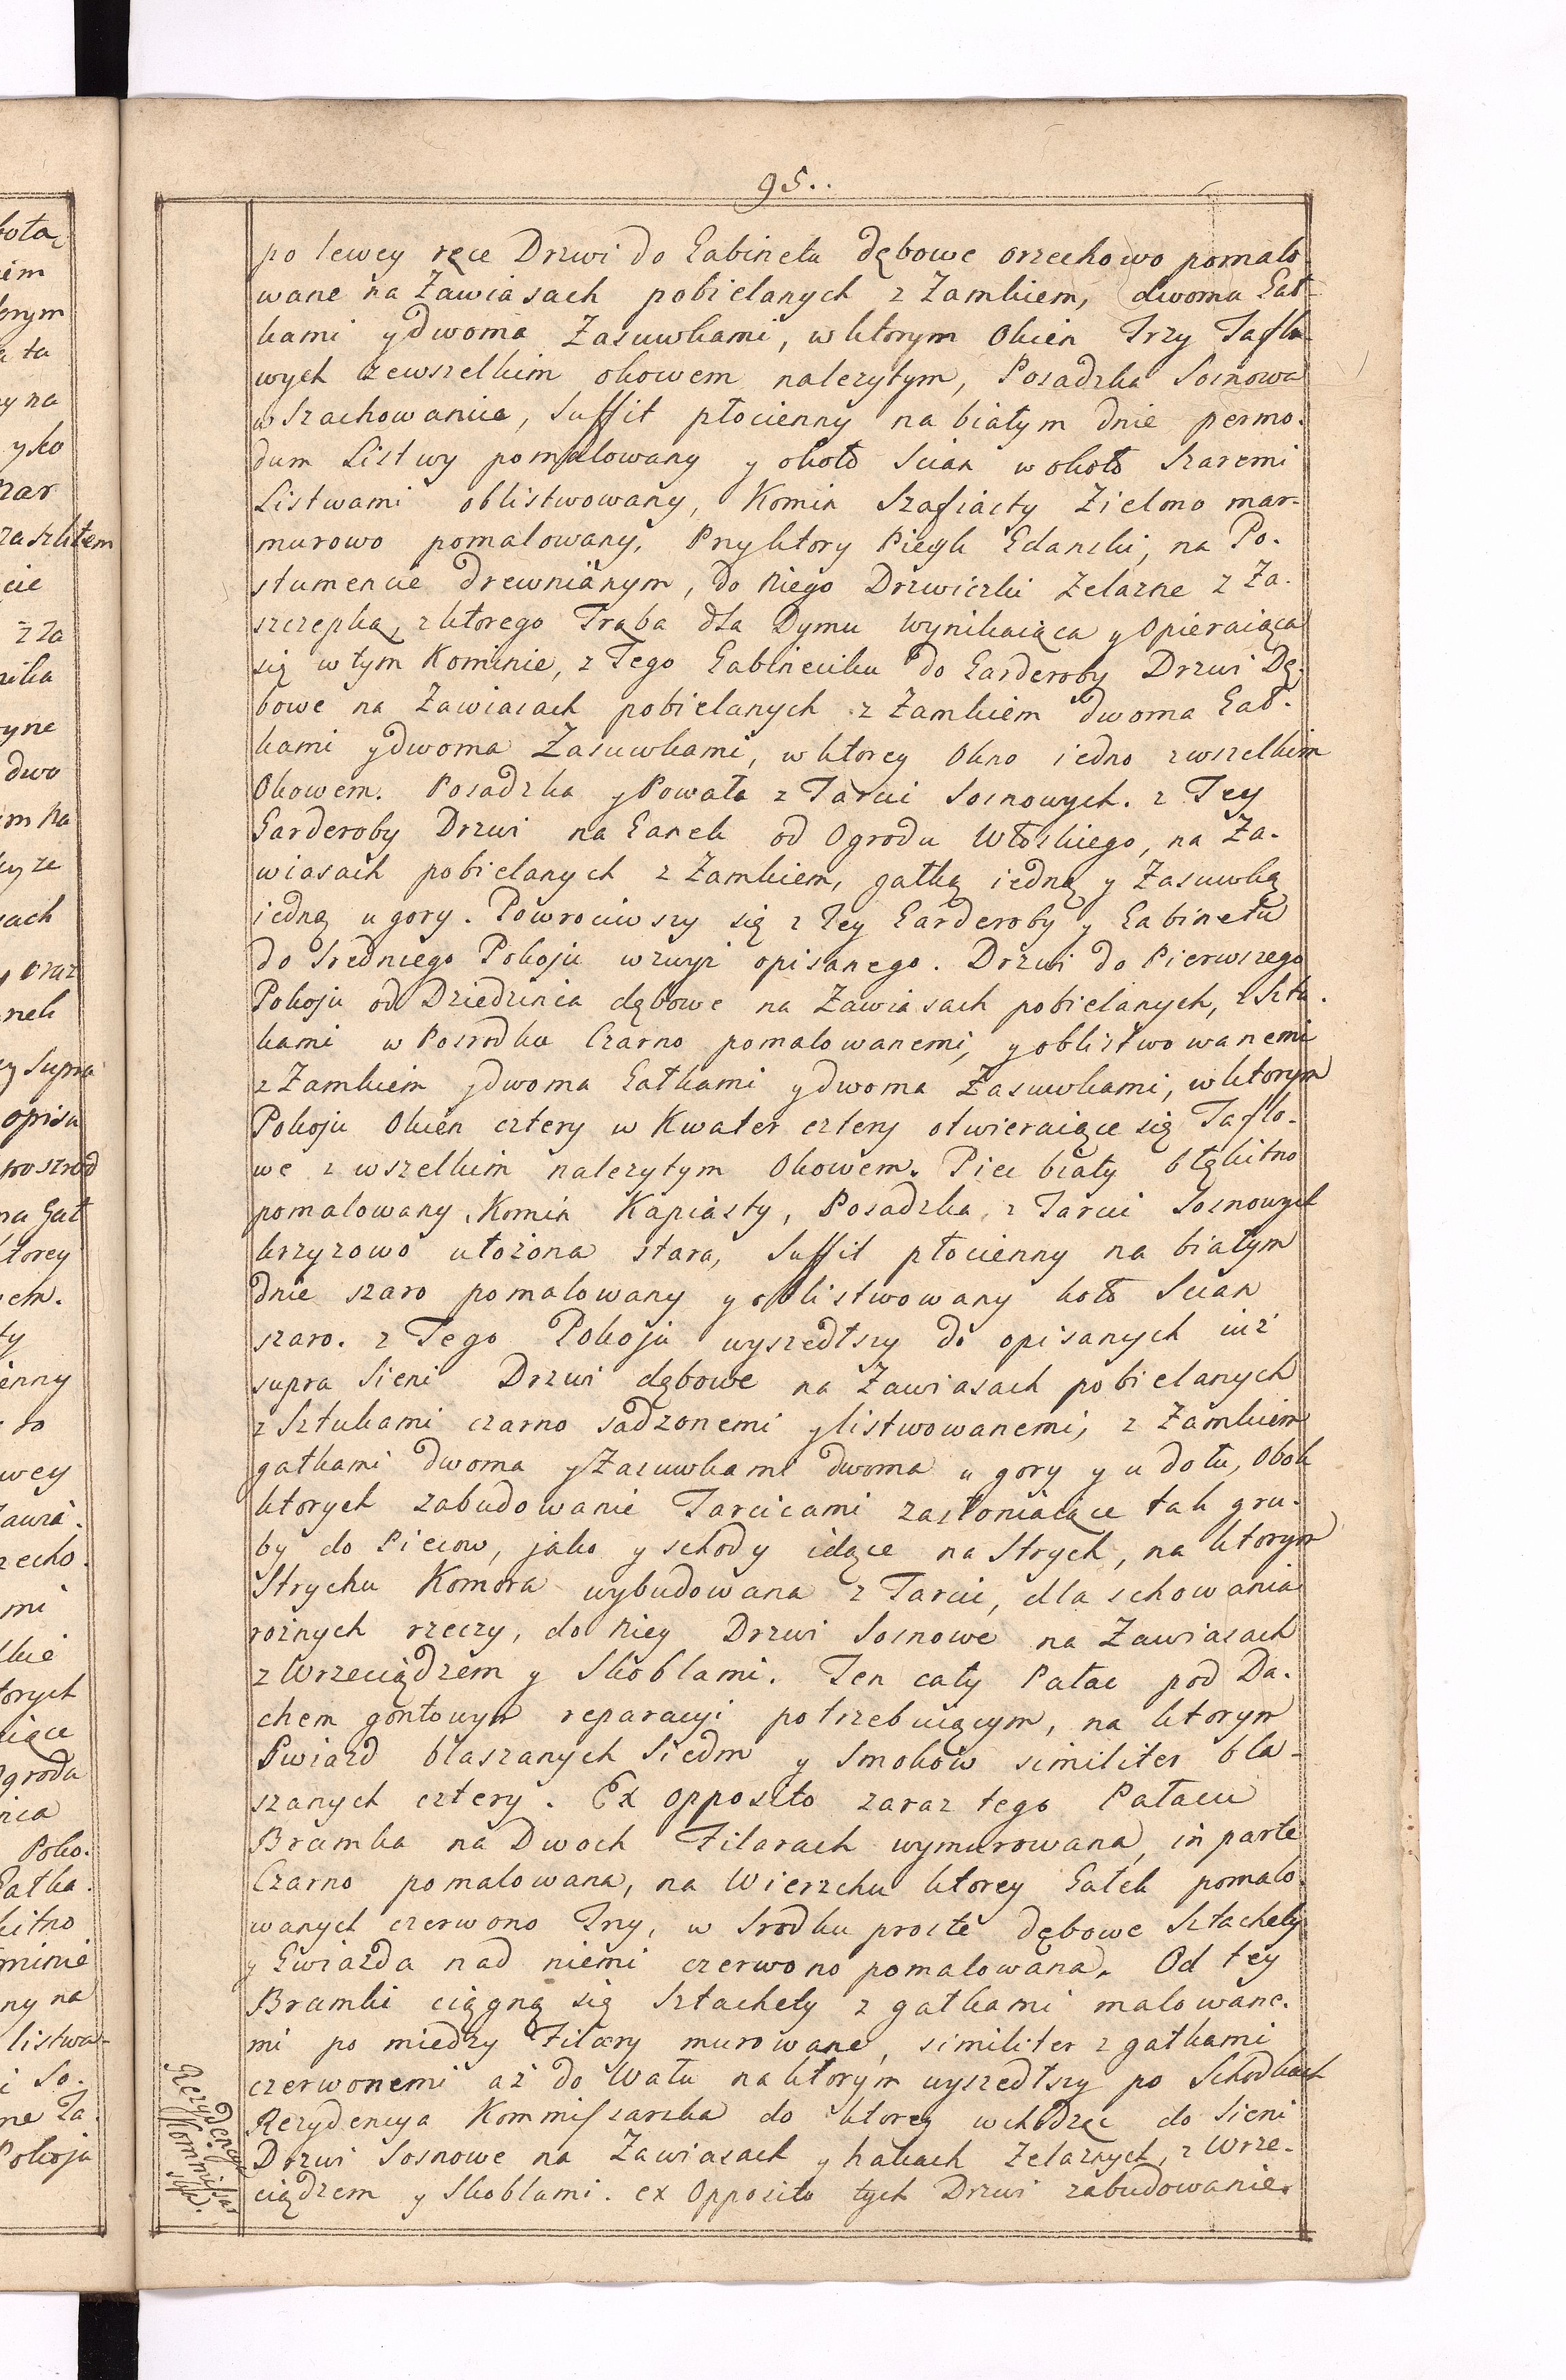 95..
po lewey ręce Drzwi do Gabinetu dębowe orzechowo pomalo-
wane na Zawiasach pobielanych z Zamkiem, dwoma Gał-
kami y dwoma Zasuwkami, w ktorym Okien Trzy Taflo-
wych zewszelkim okowem nalezytym, Posadzka Sosnowa
w Szachowanice, Suffit płocienny na białym dnie permo-
dum Listwy pomalowany y około Scian w około Szaremi
Listwami oblistwowany, Komin Szafiasty Zielono mar-
murowo pomalowany, Przyktory Piecyk Gdanski, na Po-
stumencie drewnianym, do niego Drzwiczki Zelazne z Za-
szczepką, z ktorego Trąba dla Dymu wynikaiąca y Opieraiąca
się w tym Kominie, z Tego Gabineciku do Garderoby Drzwi Dę-
bowe na Zawiasach pobielanych z Zamkiem dwoma Gał-
kami y dwoma Zasuwkami, w ktorey Okno iedno z wszelkim
Okowem. Posadzka y Powała z Tarcic Sosnowych. z Tey
Garderoby Drzwi na Ganek od Ogrodu Włoskiego, na Za-
wiasach pobielanych z Zamkiem, gałką iedną y Zasuwką
iedną u gory. Powrociwszy się z Tey Garderoby y Gabinetu
do Sredniego Pokoju wzwyż opisanego. Drzwi do Pierwszego
Pokoju od Dziedzinca dębowe na Zawiasach pobielanych, z Sztu-
kami w Posrodku Czarno pomalowanemi, y oblistwowanemi
z Zamkiem y dwoma Gałkami y dwoma Zasuwkami, w ktorym
Pokoju Okien cztery w Kwater cztery otwieraiące się Taflo-
we z wszelkim nalezytym Okowem. Piec biały błękitno
pomalowany, Komin Kapiasty, Posadzka z Tarcic Sosnowych
krzyzowo ułożona stara, Suffit płocienny na białym
dnie szaro pomalowany y oblistwowany koło Scian
szaro. z Tego Pokoju wyszedłszy do opisanych iuż
supra Sieni Drzwi dębowe na Zawiasach pobielanych
z Sztukami czarno sadzonemi y listwowanemi, z Zamkiem
gałkami dwoma y Zasuwkami dwoma u gory y u dołu, Obok
ktorych zabudowanie Tarcicami zasłoniaiące tak gru-
by do Piecow, jako y schody idące na Strych, na ktorym
Strychu Komora wybudowana z Tarcic, dla schowania
rożnych rzeczy, do niey Drzwi Sosnowe na Zawiasach
z Wrzeciądzem y Skoblami. Ten cały Pałac pod Da-
chem gontowym reparacyi potrzebuiącym, na ktorym
Gwiazd blaszanych Siedm y Smokow similiter bla-
szanych cztery. Ex opposito zaraz tego Pałacu
Bramka na Dwoch Filarach wymurowana, in parte
Czarno pomalowana, na Wierzchu ktorey Gałek pomalo-
wanych czerwono Trzy, w Srodku proste dębowe Sztachety
y Gwiazda nad niemi czerwono pomalowana. Od tey
Bramki ciągną się Sztachety z gałkami malowane-
mi po miedzy Filary murowane, similiter z gałkami
czerwonemi aż do Wału na ktorym wyszedłszy po Schodkach
Rezydencya Kommissarska do ktorey wchodząc do Sieni
Drzwi Sosnowe na Zawiasach y hakach Zelaznych, z Wrze-
ciądzem y Skoblami. ex Opposito tych Drzwi zabudowanie
Rezydencya
Kommissar
ska.